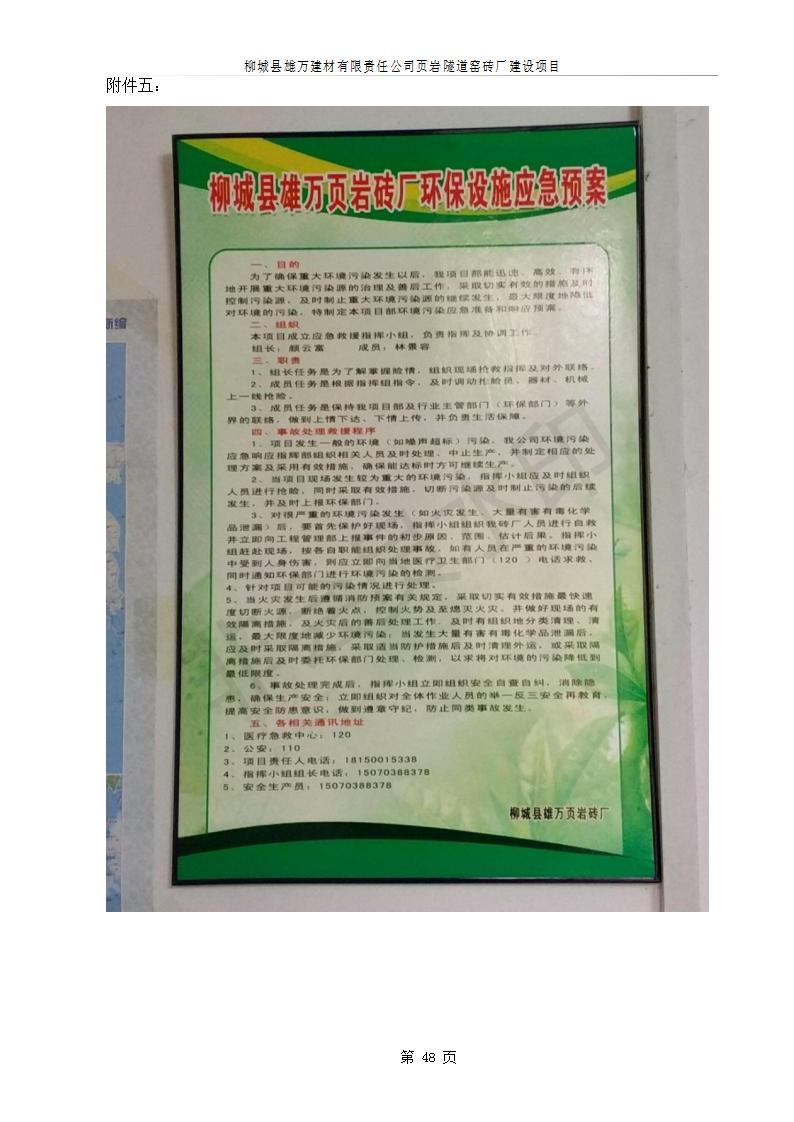 柳城县雄万建材有限责任公司页岩隧道窑砖厂建设项目
附件五：
新编
柳城县雄万页岩砖厂环保设施应急预案
一、目的
为了确保重大环境污染发生以后，我项目部能迅速、高效、有序
地开展重大环境污染源的治理及善后工作，采取切实有效的措施及时
控制污染源，及时制止重大环境污染源的继续发生，最大限度地降低
对环境的污染，特制定本项目部环境污染应急准备和响应预案。
二、组织
本项目成立应急救援指挥小组，负责指挥及协调工作。
组长：颜云富 成员：林景容
三、职责
1、组长任务是为了解掌握险情，组织现场抢救指挥及对外联络。
2、成员任务是根据指挥组指令，及时调动抢险员、器材、机械
上一线抢险。
3、成员任务是保持我项目部及行业主管部门（环保部门）等外
界的联络，做到上情下达、下情上传，并负责生活保障。
四、事故处理救援程序
1、项目发生一般的环境（如噪声超标）污染，我公司环境污染
应急响应指挥部组织相关人员及时处理、中止生产，并制定相应的处
理方案及采用有效措施，确保能达标时方可继续生产。
2、当项目现场发生较为重大的环境污染，指挥小组应及时组织
人员进行抢险，同时采取有效措施，切断污染源及时制止污染的后续
发生，并及时上报环保部门。
3、对很严重的环境污染发生（如火灾发生、大量有害有毒化学
品泄漏）后，要首先保护好现场，指挥小组组织我砖厂人员进行自救
并立即向工程管理部上报事件的初步原因、范围、估计后果。指挥小
组赶赴现场，按各自职能组织处理事故，如有人员在严重的环境污染
中受到人身伤害，则应立即向当地医疗卫生部门（120 ）电话求救，
同时通知环保部门进行环境污染的检测。
4、针对项目可能的污染情况进行处理。
5、当火灾发生后遵循消防预案有关规定，采取切实有效措施最快速
度切断火源，断绝着火点，控制火势及至熄灭火灾。并做好现场的有
效隔离措施，及火灾后的善后处理工作。及时有组织地分类清理、清
运，最大限度地减少环境污染；当发生大量有害有毒化学品泄漏后，
应及时采取隔离措施，采取适当防护措施后及时清理外运，或采取隔
离措施后及时委托环保部门处理、检测，以求将对环境的污染降低到
最低限度。
6、事故处理完成后，指挥小组立即组织安全自查自纠，消除隐
患，确保生产安全；立即组织对全体作业人员的举一反三安全再教育，
提高安全防患意识，做到遵章守纪，防止同类事故发生。
五、各相关通讯地址
1、医疗急救中心：120
2、公安：110
3、项目责任人电话：18150015338
4、指挥小组组长电话：15070388378
5、安全生产员：15070388378
柳城县雄万页岩砖厂
第 48 页